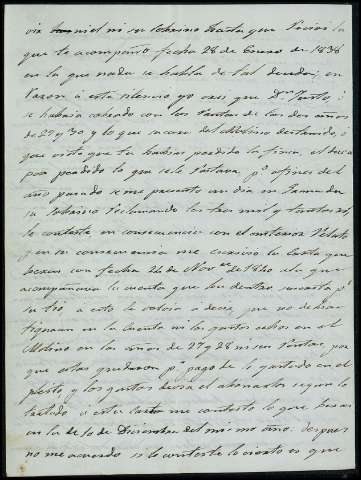 via ni su sobrino hasta que recivi la
que te acompaño fecha 28 de Enero de 1838
en la que nada se habla de tal deuda; en
razon á este silencio yo creí que Dn Justo, ó
se habria cobrado con las rentas de los dos años
de 29 y 30 y lo que sacara del Molino destruido, ó
que visto que tu habias perdido la finca, el daba
por perdido lo que se le restava. pr. á fines del
año pasado se me presentó un dia en
su sobrino reclamando los tres mil y tantos rs,
le contesté en consecuencia con el anterior relato
y en su consecuencia me escrivió la carta que
veras con fecha 24 de Novre de 1840 á la que
acompañava la cuenta que hay dentro suscrita pr
su tio, á esto le volvia á decir, que no debian
figurar en la cuenta ni los gastos echos en el
Molino en los años de 27 y 28 ni sus rentas por
que estas quedaron pa pago de lo gastado en el
pleito y los gastos devia el abonarlos segun lo
tratado á esta carta me contestó lo que veras
en la de 10 de Diciembre del mismo año. despues
no me acuerdo si le contesté lo cierto es que